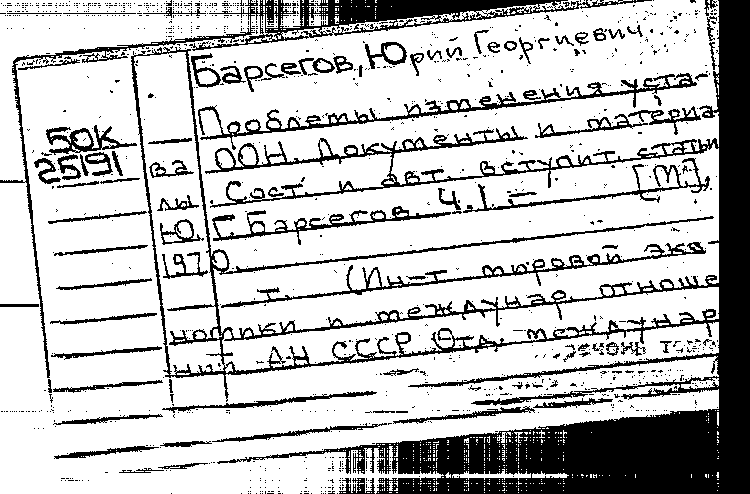 Барсегов, Юрий Георгиевич.
Проблемы изменения уста-
50К
25191
ва ООН. Документы и материа-
лы. Сост. и авт. вступит. статьи
Ю. Г. Барсегов. Ч. 1. – [М.],
1970.
т. (Ин-т мировой эко-
номики и междунар. отноше
ний АН СССР Отд. междунар